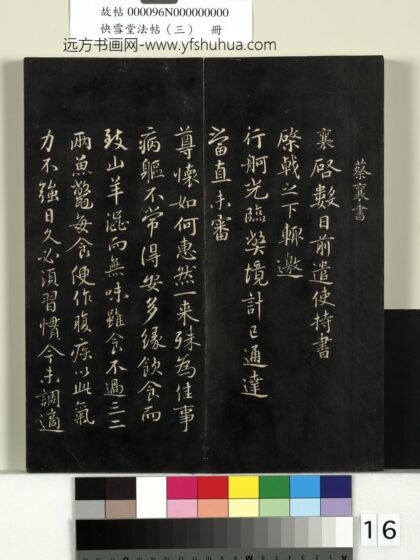 故帖 000096N000000000
快雪堂法帖（三） 冊
远方书画网-www.yfshuhua.com
蔡襄書
襄啓數日前遣使持書
棨戟之下輒邀
行舸光臨弊境計已通達
當直未審
尊懷如何惠然一来殊為佳事
病軀不常得安多緣飲食而
致山羊澀而無味雖食不過三二
兩魚鱉每食便作腹疾以此氣
力不強日久必須習慣今未調適
16